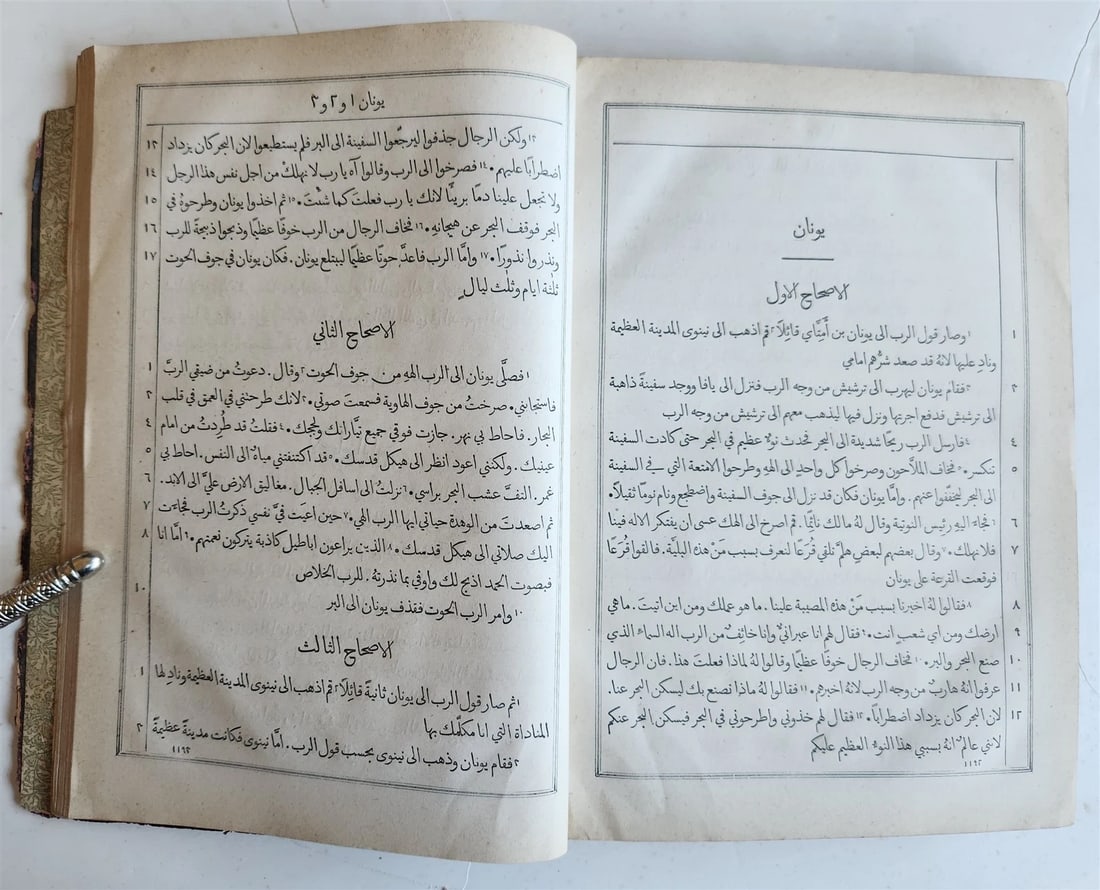 يونان
الاصحاح الاول
١ ١وصار قول الرب الى يونان بن أَمِتَّاي قائِلًا ٢قم اذهب الى نينوى المدينة العظيمة
وناد عليها لانهُ قد صعد شرُّهم امامي
٣ ٣فقام يونان ليهرب الى ترشيش من وجه الرب فنزل الى يافا ووجد سفينة ذاهبة
الى ترشيش فدفع اجرتها ونزل فيها ليذهب معهم الى ترشيش من وجه الرب
٤ ٤فارسل الرب ريحًا شديدة الى البحر فحدث نوءٌ عظيم في البحر حتى كادت السفينة
٥ تنكسر. ٥فخاف الملَّاحون وصرخوا كل واحدٍ الى الههِ وطرحوا الامتعة التي في السفينة
الى البحر ليخففوا عنهم. وامَّا يونان فكان قد نزل الى جوف السفينة واضطجع ونام نومًا ثقيلًا.
٦ ٦فجاءَ اليهِ رئيس النوتية وقال لهُ ما لك نائِمًا. قم اصرخ الى الهك عسى ان يفتكر الاله فينا
٧ فلا نهلك. ٧وقال بعضهم لبعضٍ هلمَّ نلقي قُرَعًا لنعرف بسبب مَنْ هذه البليَّة. فالقوا قُرَعًا
فوقعت القرعة على يونان
٨ ٨فقالوا لهُ اخبرنا بسبب مَنْ هذه المصيبة علينا. ما هو عملك ومن اين اتيت. ما هي
٩ ارضك ومن اي شعبٍ انت. ٩فقال لهم انا عبرانيٌّ وانا خائِفٌ من الرب اله السماءِ الذي
١٠ صنع البحر والبر. ١٠فخاف الرجال خوفًا عظيمًا وقالوا لهُ لماذا فعلت هذا. فان الرجال
١١ عرفوا انهُ هاربٌ من وجه الرب لانهُ اخبرهم. ١١فقالوا لهُ ماذا نصنع بك ليسكن البحر عنا.
١٢ لان البحر كان يزداد اضطرابًا. ١٢فقال لهم خذوني واطرحوني في البحر فيسكن البحر عنكم
لانني عالمٌ انهُ بسببي هذا النوءُ العظيم عليكم
١١٩٢
يونان ١ و٢ و٣
١٣ولكن الرجال جذفوا ليرجّعوا السفينة الى البر فلم يستطيعوا لان البحر كان يزداد ١٣
اضطرابًا عليهم. ١٤فصرخوا الى الرب وقالوا آه يا رب لا نهلكْ من اجل نفس هذا الرجل ١٤
ولا تجعل علينا دمًا بريئًا لانك يا رب فعلتَ كما شئْتَ. ١٥ثم اخذوا يونان وطرحوهُ في ١٥
البحر فوقف البحر عن هيجانهِ. ١٦فخاف الرجال من الرب خوفًا عظيمًا وذبحوا ذبيحةً للرب ١٦
ونذروا نذورًا. ١٧وامَّا الرب فاعدَّ حوتًا عظيمًا ليبتلع يونان. فكان يونان في جوف الحوت ١٧
ثلثة ايام وثلث ليالٍ
الاصحاح الثاني
١فصلَّى يونان الى الرب الههِ من جوف الحوت ٢وقال. دعوتُ من ضيقي الربَّ ١
فاستجابني. صرختُ من جوف الهاوية فسمعتَ صوتي. ٣لانك طرحتني في العمق في قلب ٢
البحار. فاحاط بي نهر. جازت فوقي جميع تيَّاراتك ولججك. ٤فقلتُ قد طُرِدتُ من امام ٤
عينيك. ولكنني اعود انظر الى هيكل قدسك. ٥قد اكتنفتني مياهٌ الى النفس. احاط بي ٥
غمر. التفَّ عشب البحر براسي. ٦نزلتُ الى اسافل الجبال. مغاليق الارض عليَّ الى الابد. ٦
ثم اصعدتَ من الوهدة حياتي ايها الرب الهي. ٧حين اعيَت فيَّ نفسي ذكرتُ الرب فجاءَت ٧
اليك صلاتي الى هيكل قدسك. ٨الذين يراعون اباطيل كاذبة يتركون نعمتهم. ٩امَّا انا ٨
فبصوت الحمد اذبح لك واوفي بما نذرتهُ. للرب الخلاص
١٠وامر الرب الحوت فقذف يونان الى البر ١٠
الاصحاح الثالث
١ثم صار قول الرب الى يونان ثانيةً قائِلًا ٢قم اذهب الى نينوى المدينة العظيمة ونادِ لها ١
المناداة التي انا مكلّمك بها
٣فقام يونان وذهب الى نينوى بحسب قول الرب. امَّا نينوى فكانت مدينةً عظيمةً ٣
١١٩٣